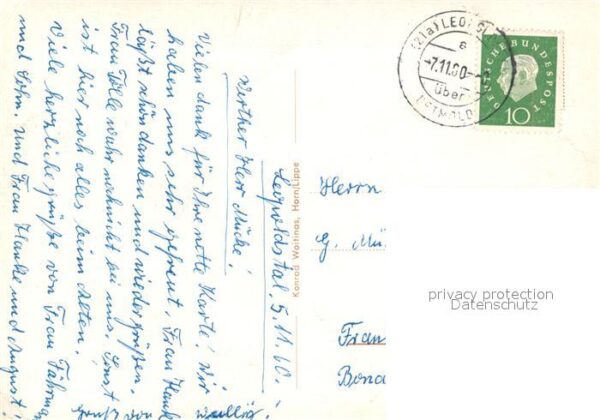 Leopoldstal, 5.11.60.
Werther Herr Mücke!
Vielen dank für Ihre nette Karte! Wir
haben uns sehr gefreut. Frau Hanke
läßt schön danken und wiedergrüßen.
Frau Tölle war nachricht bei uns. Sonst
ist hier noch alles beim Alten.
Viele herzliche grüße von Frau
und Sohn. und Frau Hanke und August!
gruß von
Konrad Wojtinas, Horn/Lippe
(21a) LEOPO
a
-7.11.60.-
über
DETMOLD
DEUTSCHE BUNDESPOST
10
Herrn
G. Mü
privacy protection
Datenschutz
Fran
Bona